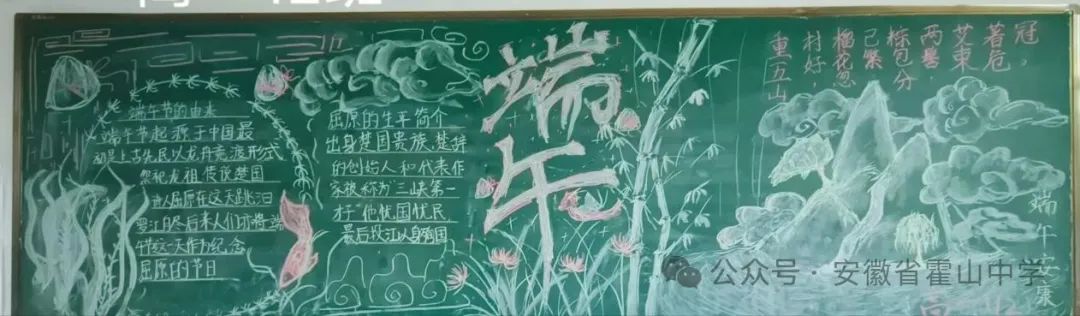 端午节的由来
端午节起源于中国最
初是上古先民以龙舟竞渡形式
祭祀龙祖传说楚国
诗人屈原在这天跳汨
罗江自尽后来人们亦将端
午节这一天作为纪念
屈原的节日
屈原的生平简介
出身楚国贵族,楚辞
的创始人和代表作
家被称为"三峡第一
才子"他忧国忧民,
最后投江以身殉国
端午
重五山
村好,
榴花忽
已繁
粽包分
两髻
艾束
著危
冠。
端午安康
公众号·安徽省霍山中学